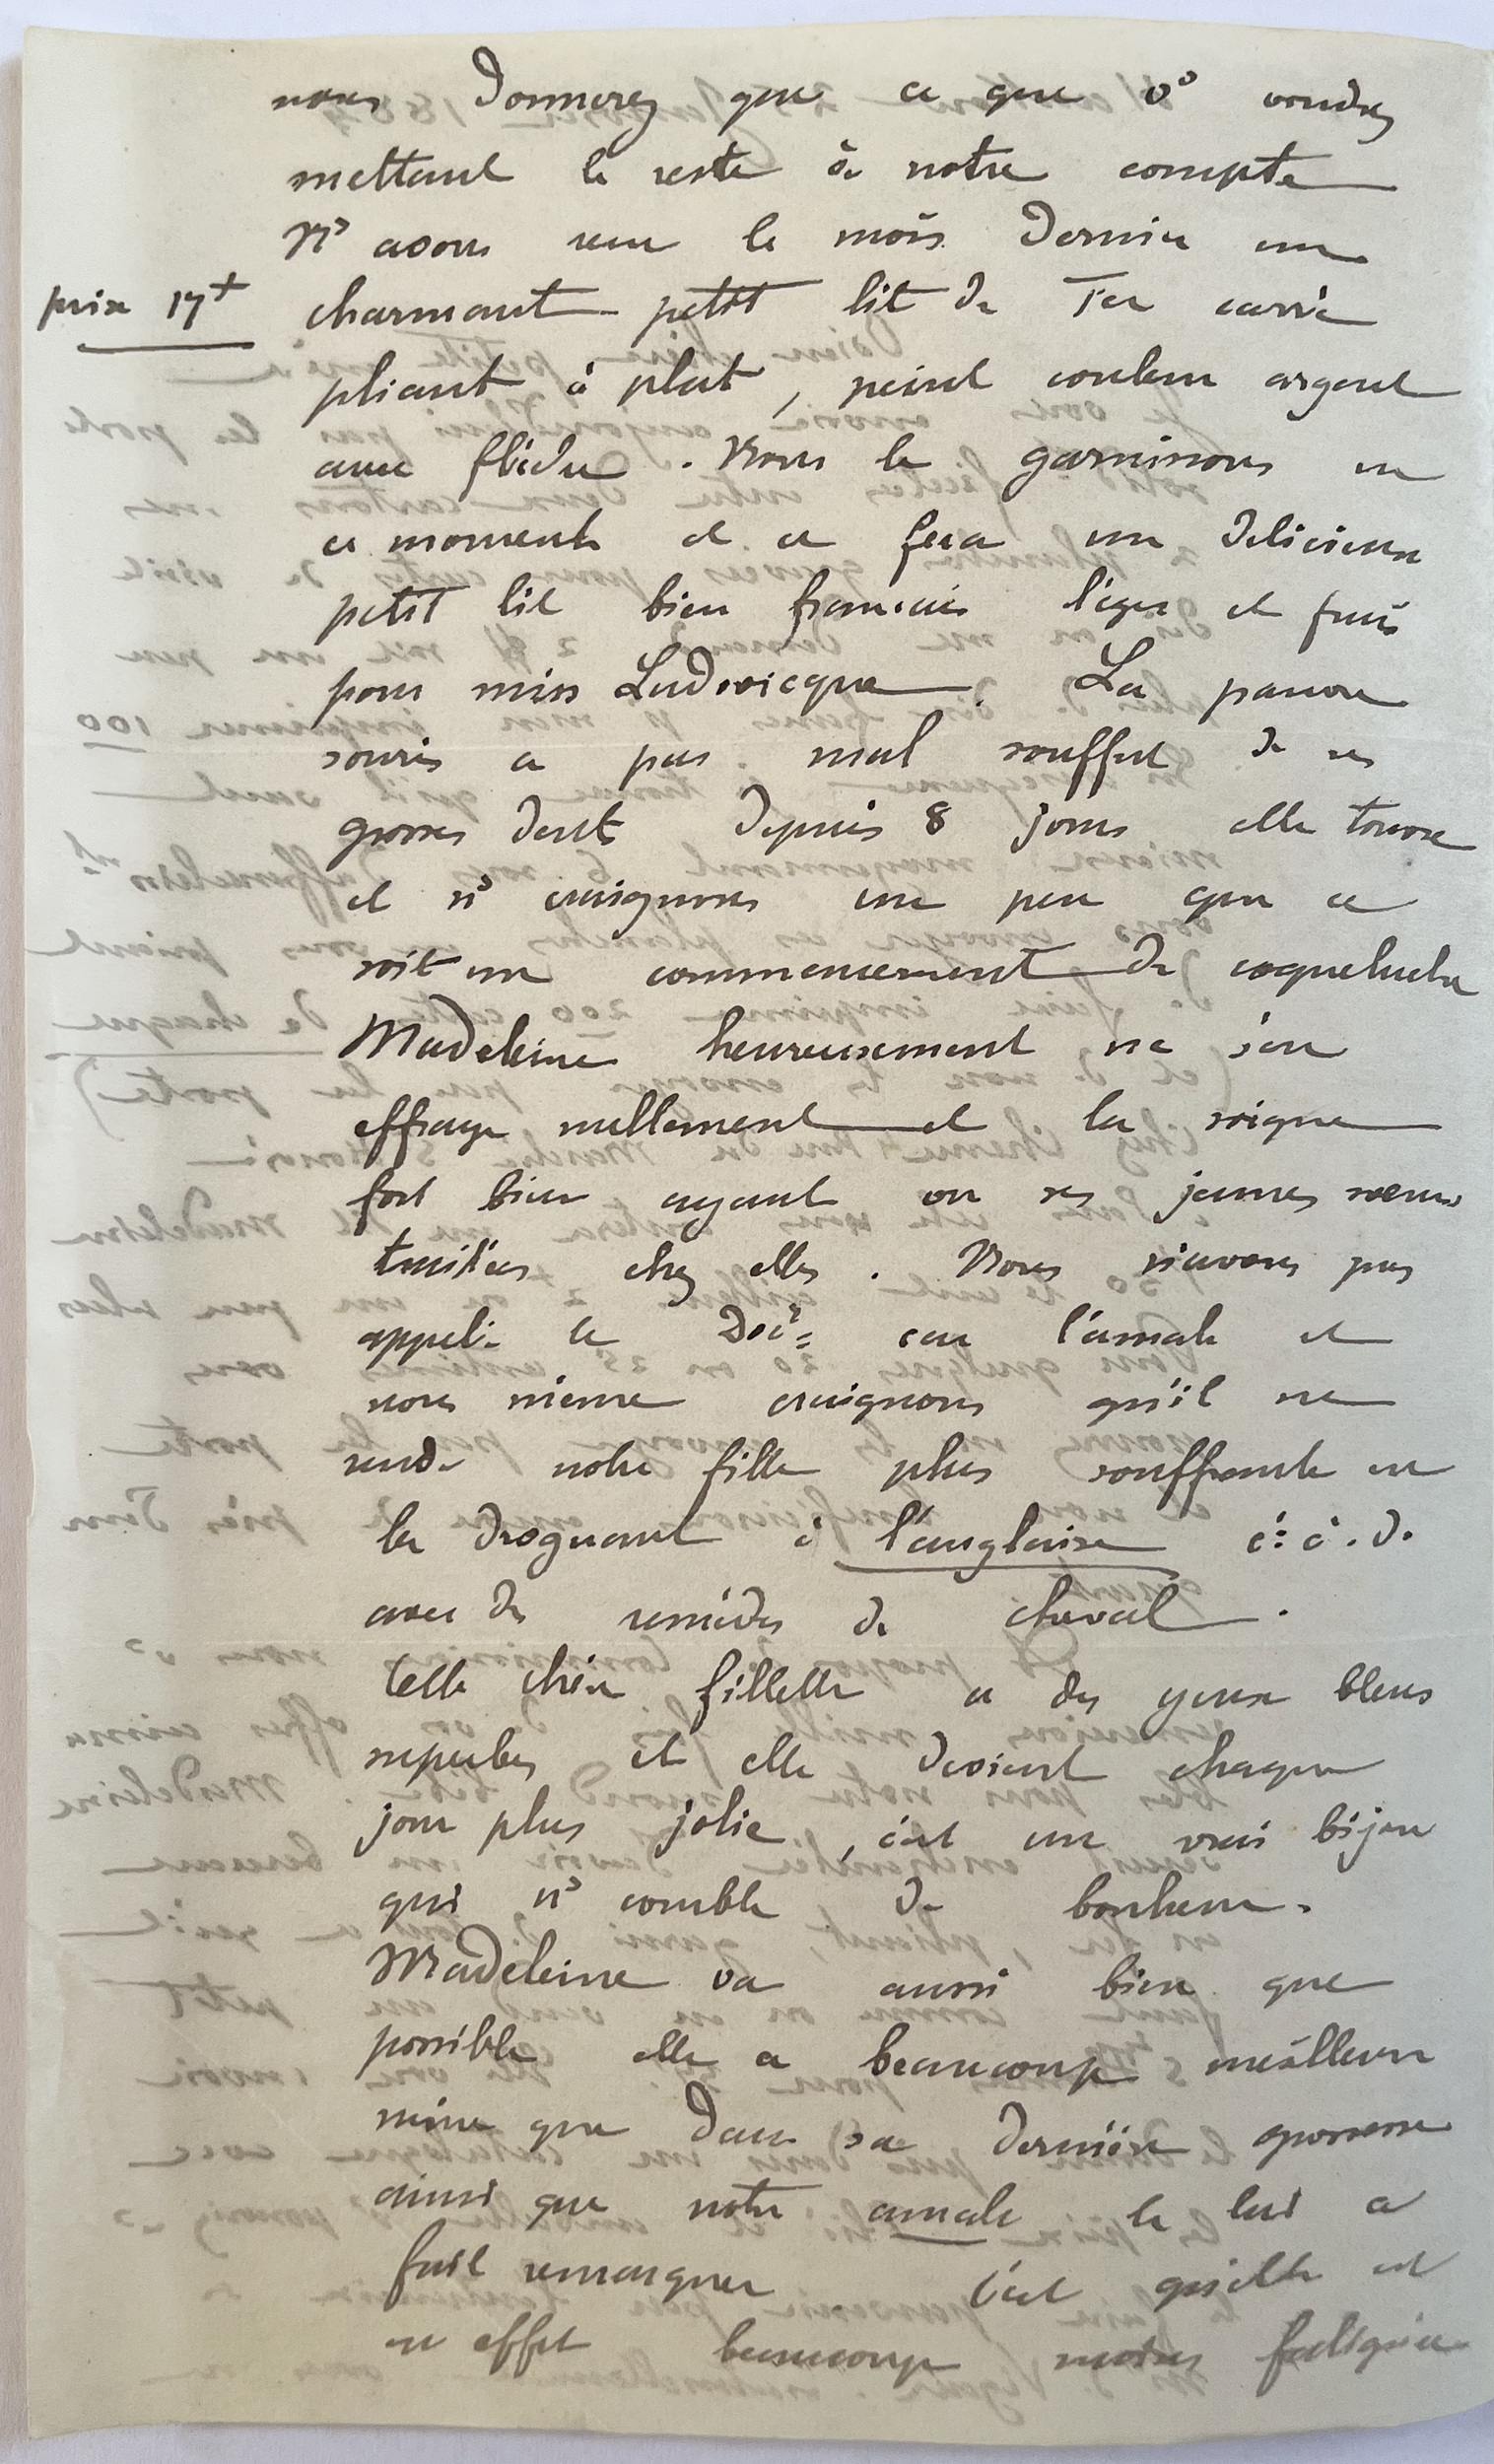 nous donnerez que ce que vˢ voudrez
mettant le reste à notre compte
Nˢ avons reçu le mois dernier un
prix 17ᶠ charmant petit lit de fer carré
pliant à plat, peint couleur argent
avec flèche. Nous le garnissons en
ce moment et ce sera un délicieux
petit lit bien français léger et frais
pour miss Ludovicque. La pauvre
souris a pas mal souffert de ses
grosses dents depuis 8 jours elle tousse
et nˢ craignons un peu que ce
soit un commencement de coqueluche
Madeleine heureusement ne s'en
effraye nullement et la soigne
fort bien ayant vu ses jeunes sœurs
traitées chez elles. Nous n'avons pas
appelé le Docʳ car l'amah et
nous même craignons qu'il ne
rende notre fille plus souffrante en
la droguant à l'anglaise c: à. d.
avec des remèdes de cheval.
Cette chère fillette a des yeux bleus
superbes et elle devient chaque
jour plus jolie, c'est un vrai bijou
qui nˢ comble de bonheur.
Madeleine va aussi bien que
possible elle a beaucoup meilleure
mine que dans sa dernière grossesse
ainsi que notre amah le lui a
fait remarquer c'est qu'elle est
en effet beaucoup moins fatiguée